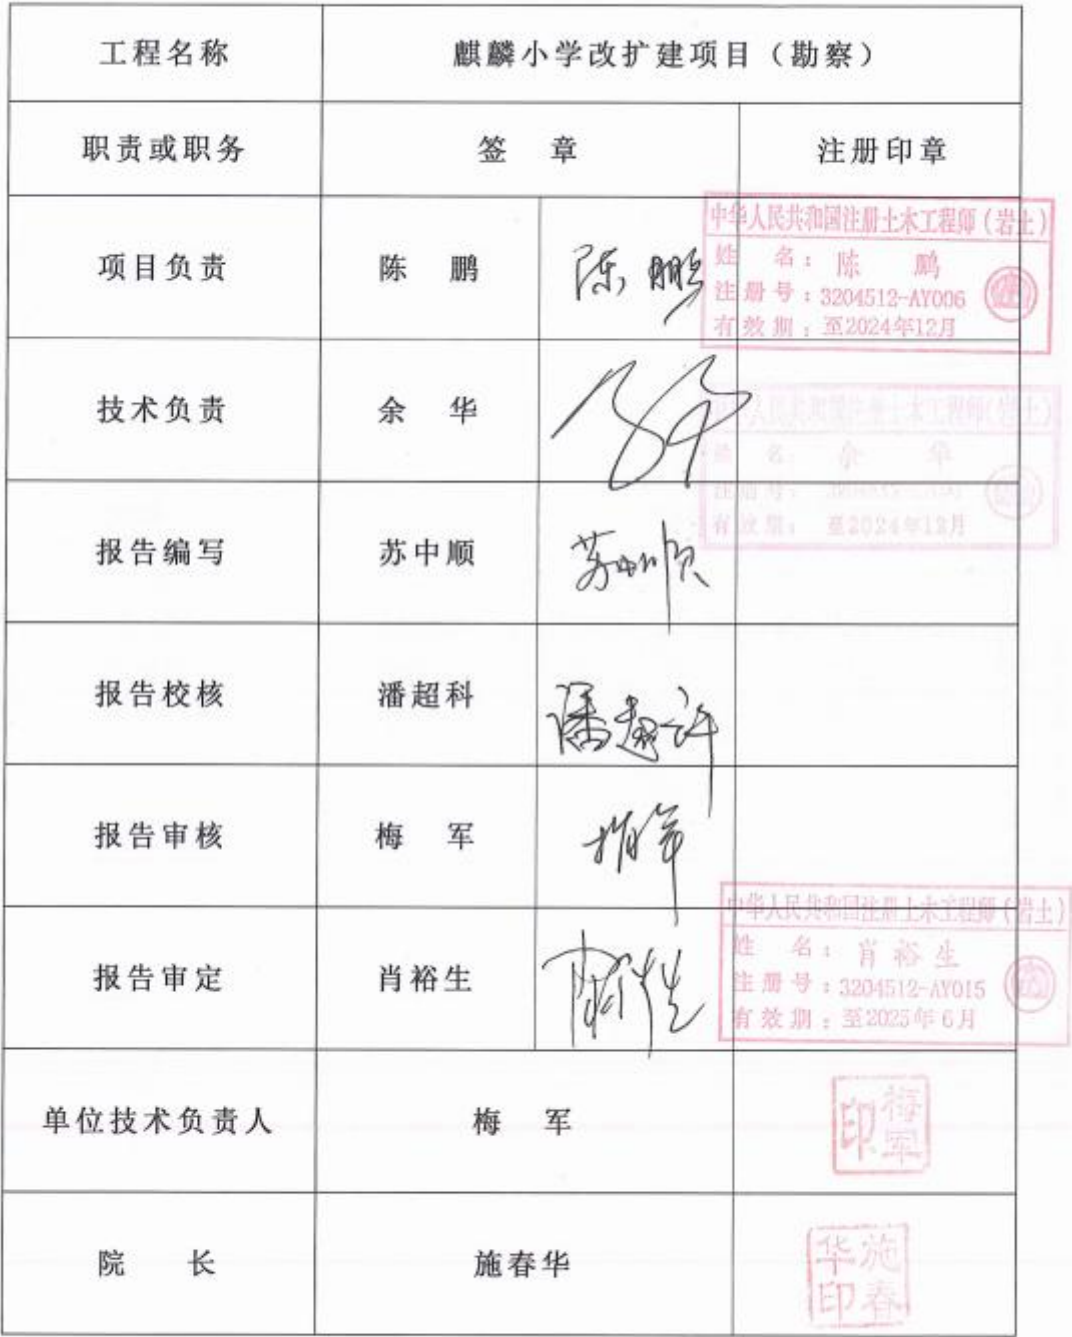 工程名称 麒麟小学改扩建项目（勘察）
职责或职务 签 章 注册印章
项目负责 陈 鹏 陈鹏
中华人民共和国注册土木工程师（岩土）
姓 名：陈 鹏
注册号：3204512-AY006
有效期：至2024年12月
技术负责 余 华
中华人民共和国注册土木工程师（岩土）
姓 名：余 华
注册号：
有效期：至2024年12月
报告编写 苏中顺 苏中顺
报告校核 潘超科 潘超科
报告审核 梅 军 梅军
报告审定 肖裕生
中华人民共和国注册土木工程师（岩土）
姓 名：肖裕生
注册号：3204512-AY015
有效期：至2025年6月
单位技术负责人 梅 军 梅军印
院 长 施春华 施春华印